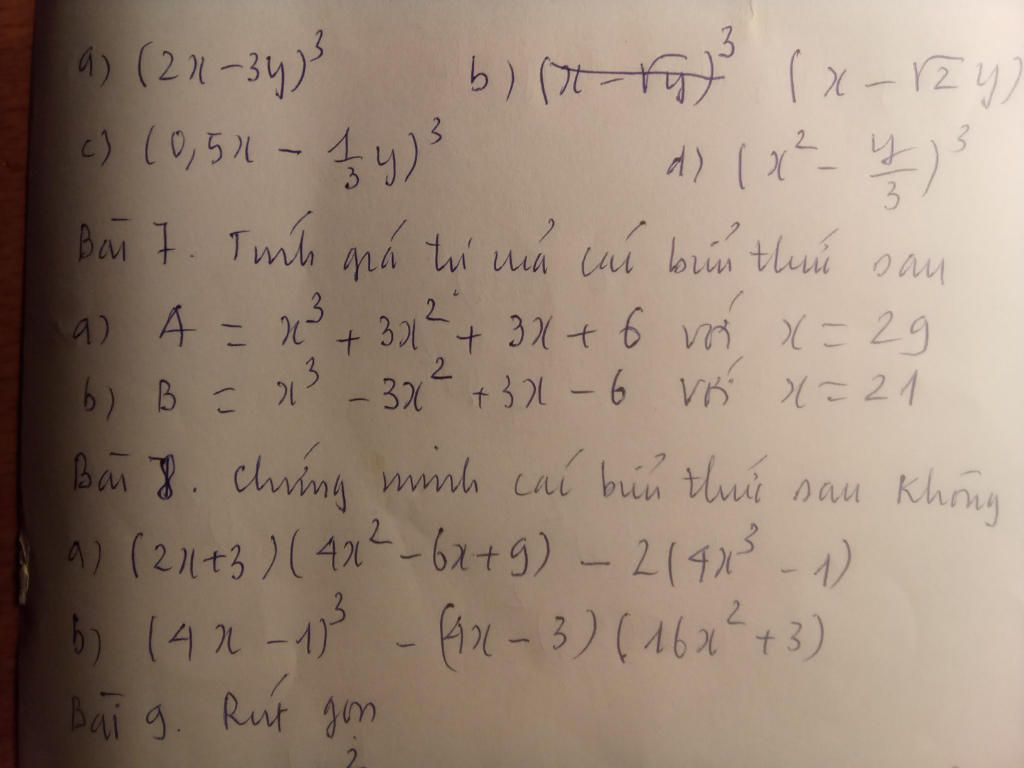 a) (2x - 3y)³ b) (x - √y)³ (x - √2 y)
c) (0,5x - 1/3 y)³ d) (x² - y/3)³
Bài 7. Tính giá trị của các biểu thức sau
a) A = x³ + 3x² + 3x + 6 với x = 29
b) B = x³ - 3x² + 3x - 6 với x = 21
Bài 8. Chứng minh các biểu thức sau không
a) (2x+3)(4x² - 6x + 9) - 2(4x³ - 1)
b) (4x - 1)³ - (4x - 3)(16x² + 3)
Bài 9. Rút gọn